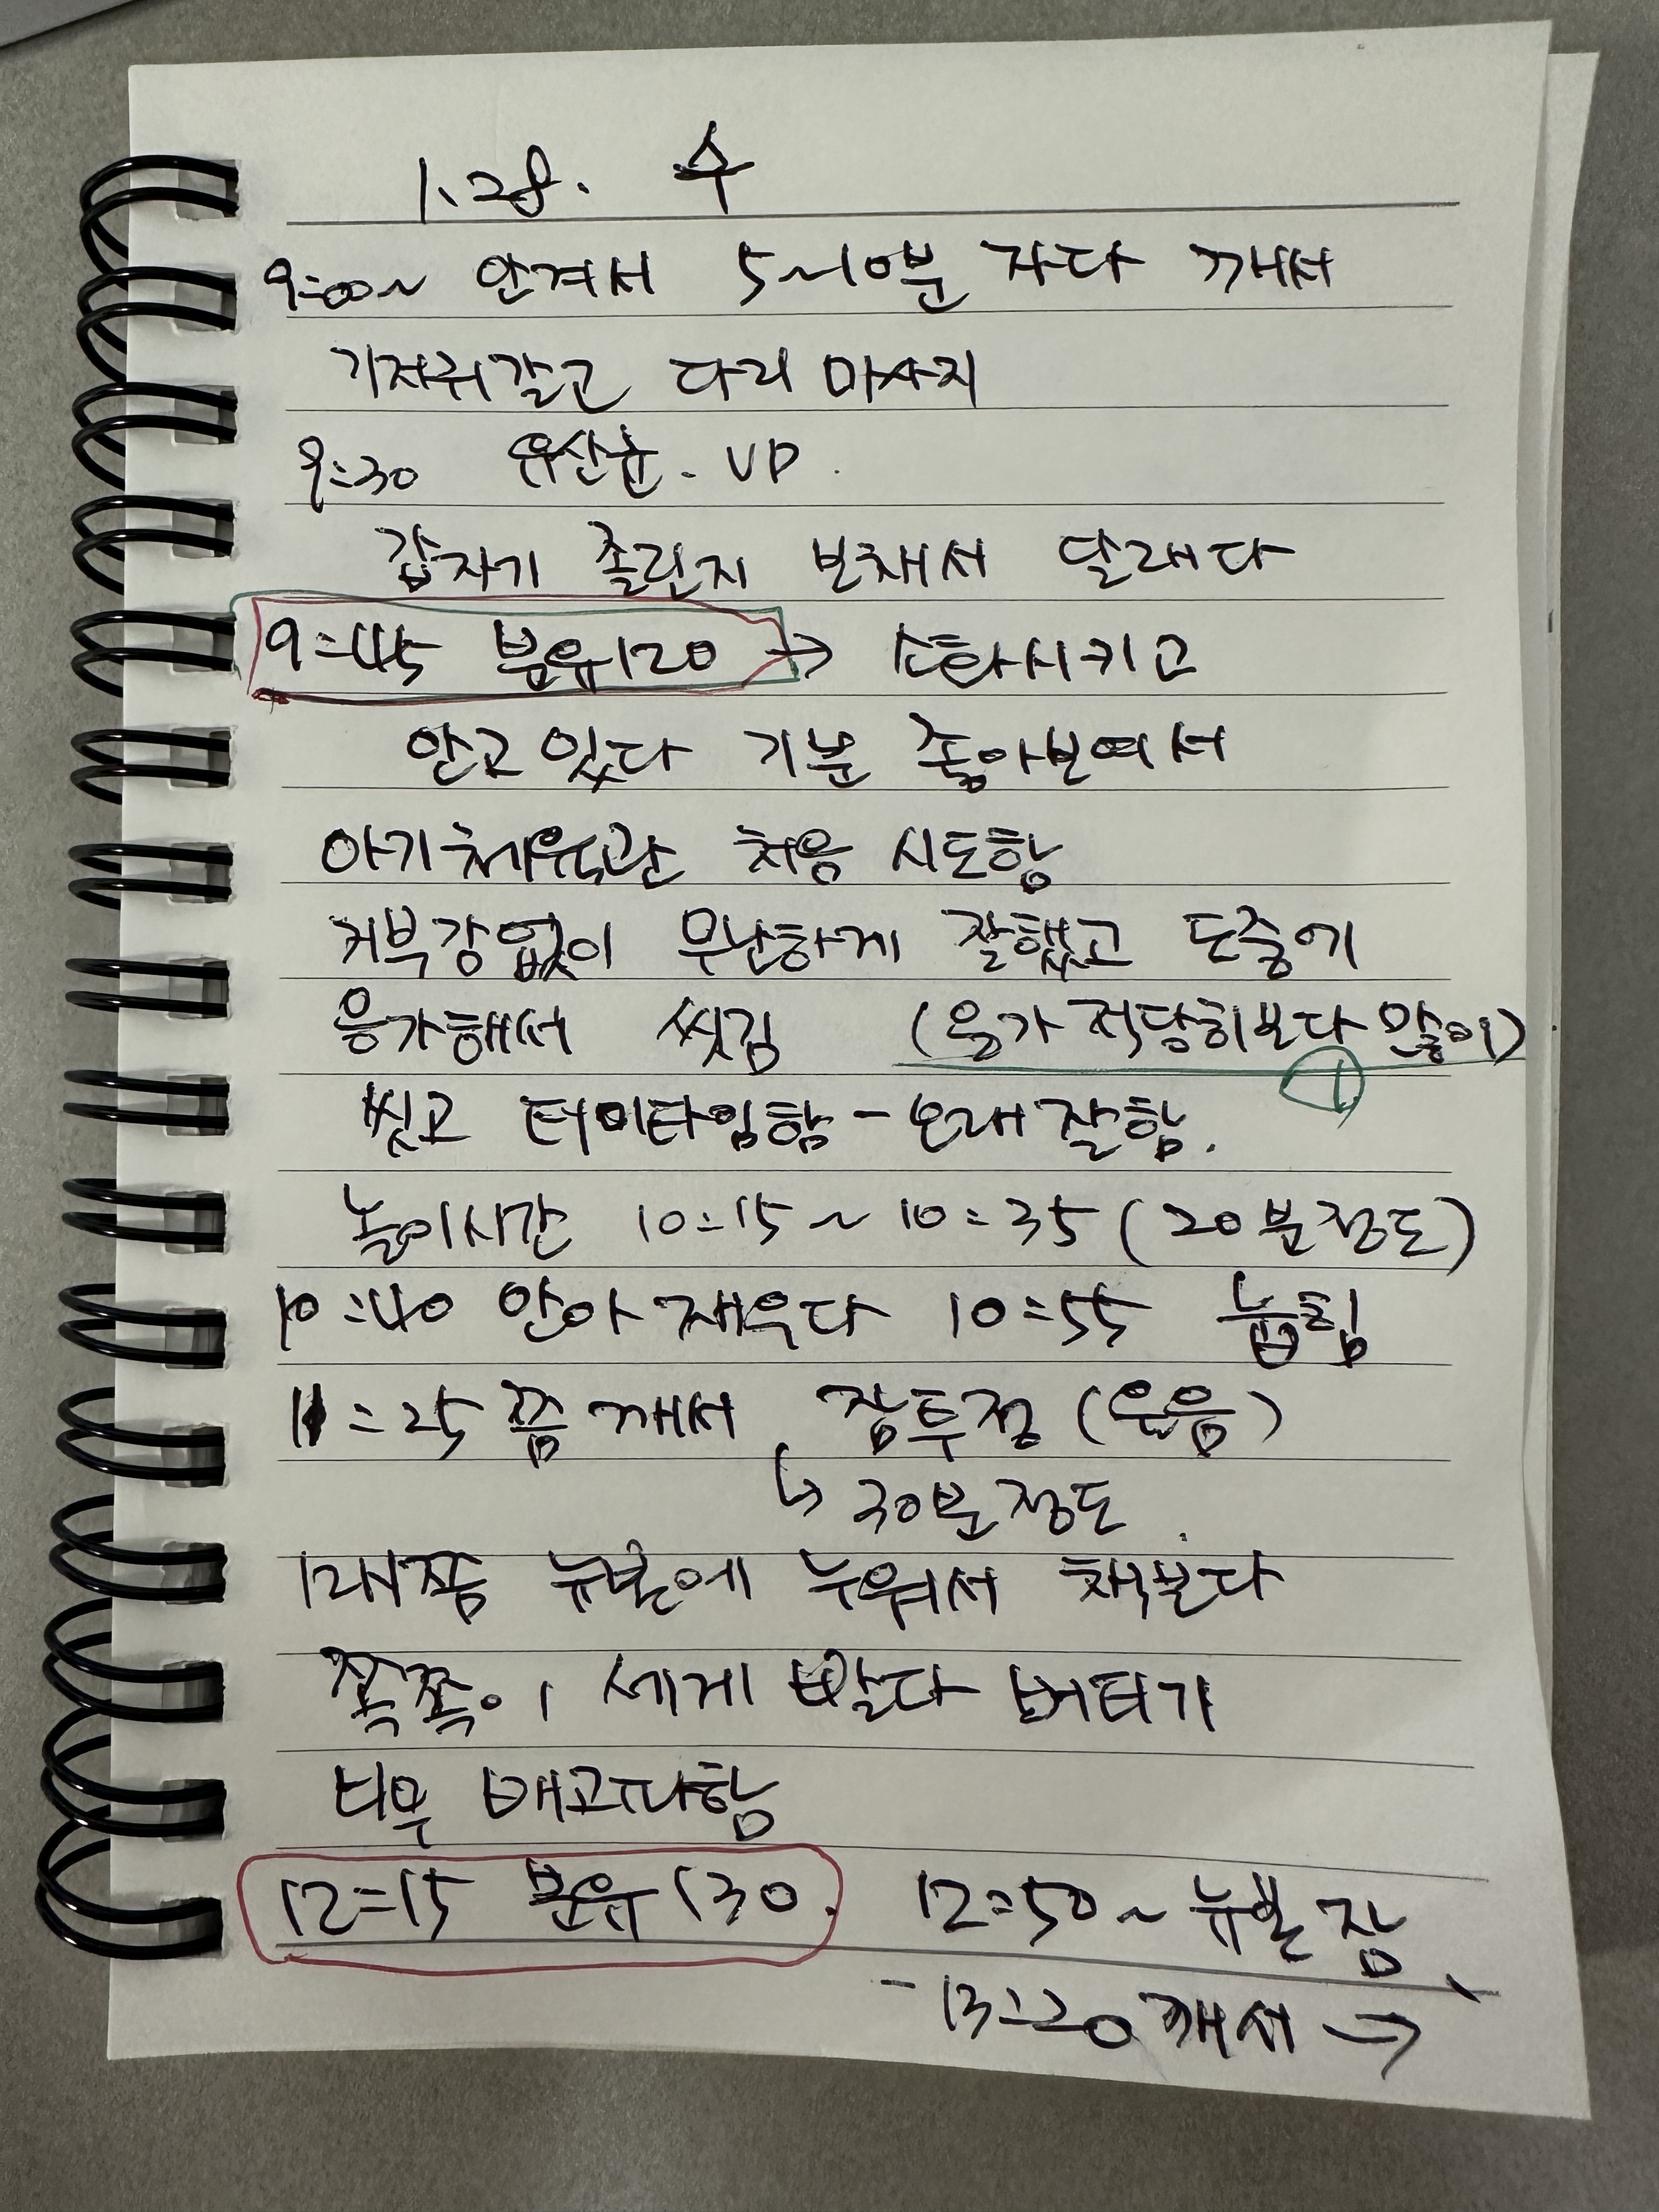 1.28. 수
9:00~ 안겨서 5~10분 자다 깨서
기저귀갈고 다리 마사지
9:30 유산균. VD.
갑자기 졸린지 보채서 달래다
9:45 분유120 → 소화시키고
안고있다 기분 좋아보여서
아기체육관 처음 시도함
거부감없이 무난하게 잘했고 도중에
응가해서 씻김 (응가 적당히보다 많이)
①
씻고 터미타임함 - 오래잘함.
놀이시간 10:15~10:35 (20분정도)
10:40 안아 재우다 10:55 눕힘
11:25쯤 깨서 잠투정 (웃음)
↳ 30분정도
12시쯤 뉴본에 누워서 책보다
쪽쪽이 세게 빨다 버티기
너무 배고파함
12:15 분유130. 12:50~ 뉴본 잠
- 13:20 깨서 →